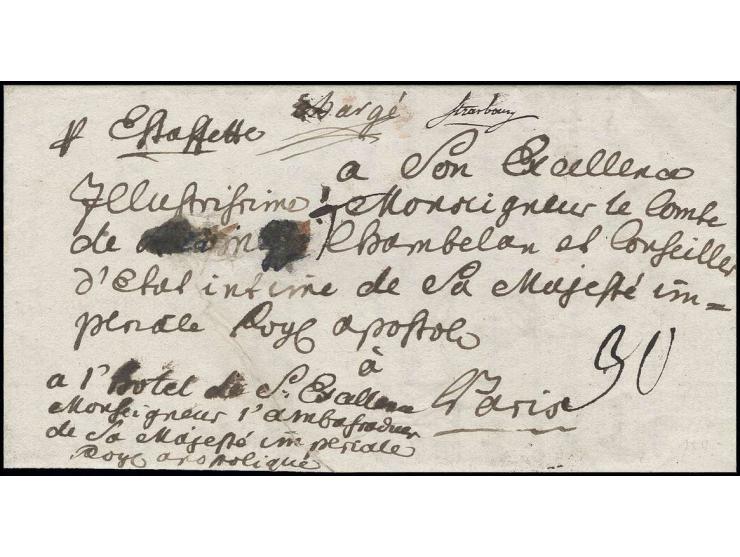 Chargé
Strasbourg
p Estaffette
a Son Excellence
Illustrissime Monseigneur le Comte
de Chambelan et Conseiller
d'Etat intime de Sa Majesté im=
periale Roye apostole
à
Paris
30
a l'hotel de S. Excellence
Monseigneur l'ambassadeur
de Sa Majesté imperiale
Roye apostolique